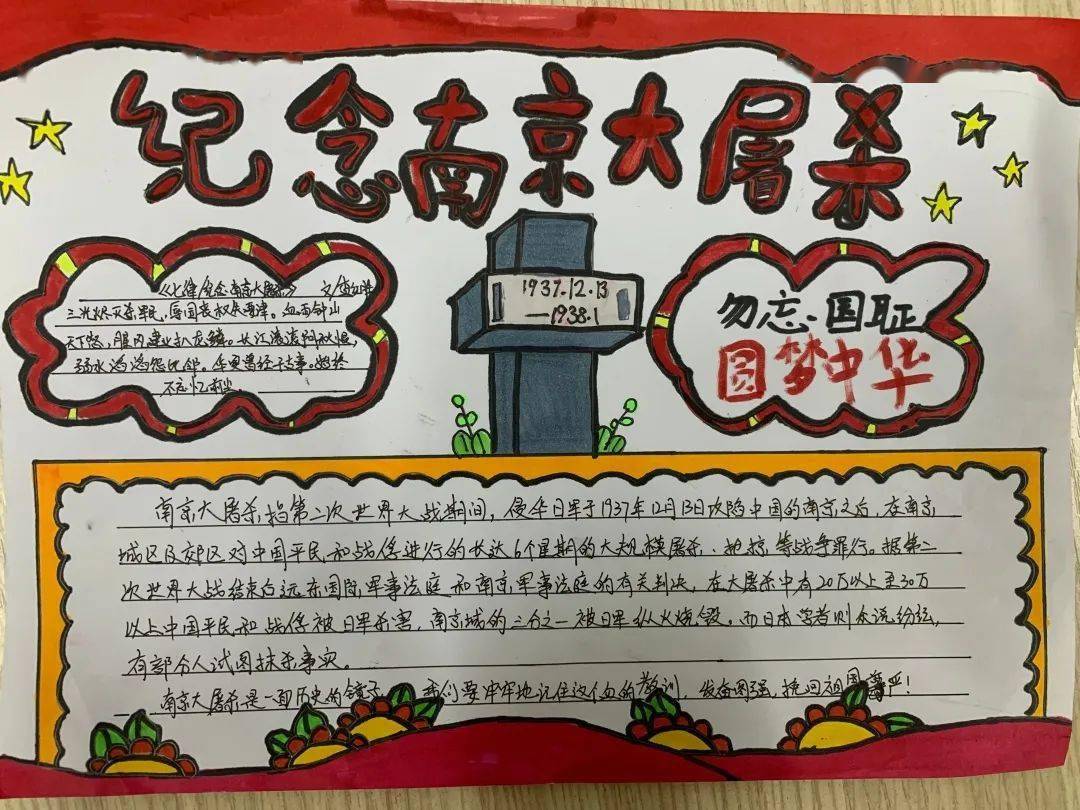 纪念南京大屠杀
《七律·纪念南京大屠杀》 文/
三光烬灭杀军民,辱国丧权失要津。血雨钟山
天下怒,
长江滚滚
不忘忆前尘。
1937.12.13
—1938.1
勿忘·国耻
圆梦中华
南京大屠杀指第二次世界大战期间,侵华日军于1937年12月13日攻陷中国的南京之后,在南京
城区及郊区对中国平民和战俘进行的长达6个星期的大规模屠杀、抢掠、等战争罪行。据第二
次世界大战结束后远东国际军事法庭和南京军事法庭的有关判决,在大屠杀中有20万以上至30万
以上中国平民和战俘被日军杀害,南京城的三分之一被日军纵火烧毁。而日本学者则众说纷纭,
有部分人试图抹杀事实。
南京大屠杀是一面历史的镜子 我们要牢牢地记住这个血的教训,发奋图强,挽回祖国尊严!